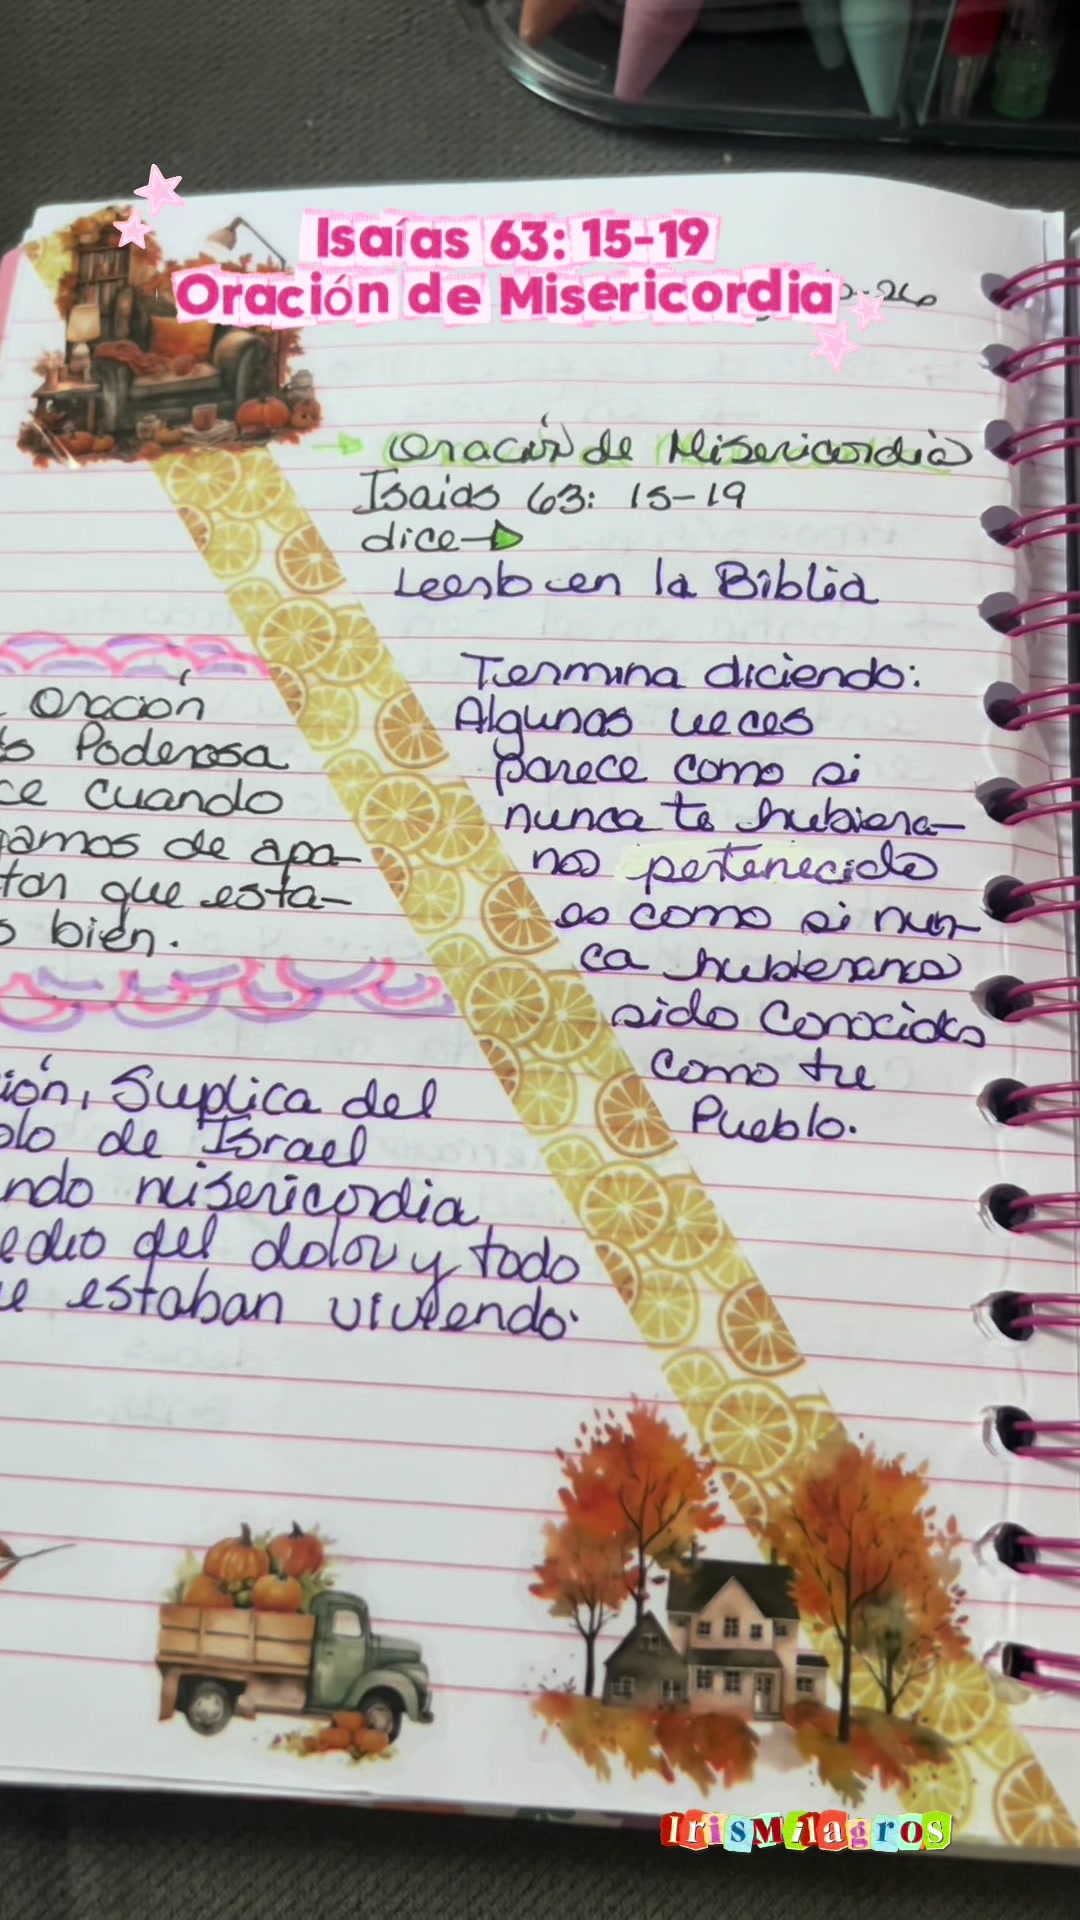 Isaías 63: 15-19
Oración de Misericordia
-26
Oración de Misericordia
Isaias 63: 15-19
dice
Leerlo en la Biblia
Termina diciendo:
Algunas veces
parece como si
nunca te hubiera-
mos pertenecido
es como si nun-
ca hubieramos
sido Conocidos
como tu
Pueblo.
Oración
Poderosa
cuando
de apa-
que esta-
bien.
Suplica del
de Israel
misericordia
del dolor y todo
estaban viviendo.
IrisMilagros